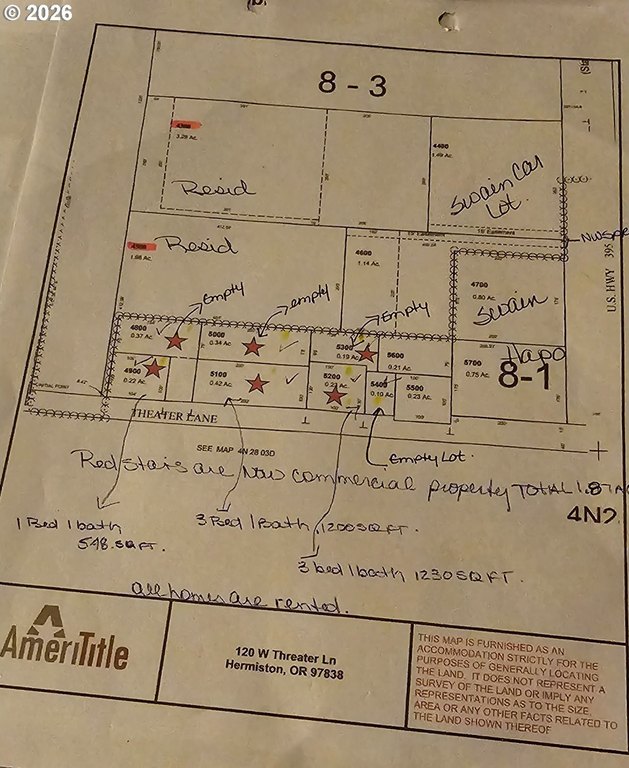 © 2026
8 - 3
4300
3.28 Ac.
4400
1.49 Ac.
Resid
Swain Car
Lot.
15' Easement
15' Easement
Resid
1.98 Ac.
4600
1.14 Ac.
U.S. HWY 395
4700
0.80 Ac.
Swain
Empty
empty
Empty
4800
0.37 Ac.
5000
0.34 Ac.
5300
0.19 Ac.
5600
0.21 Ac.
5700
0.75 Ac.
Hapo
8-1
4900
0.22 Ac.
5100
0.42 Ac.
5200
5400
0.10 Ac.
5500
0.23 Ac.
INITIAL POINT
THEATER LANE
SEE MAP 4N 28 03D
Empty Lot.
Red stars are Now commercial property TOTAL 1.87 A
4N2
1 Bed 1 bath
548. SQ FT.
3 Bed 1 Bath 1200 SQ FT.
3 bed 1 bath 1230 SQ FT.
all homes are rented.
AmeriTitle
120 W Threater Ln
Hermiston, OR 97838
THIS MAP IS FURNISHED AS AN
ACCOMMODATION STRICTLY FOR THE
PURPOSES OF GENERALLY LOCATING
THE LAND. IT DOES NOT REPRESENT A
SURVEY OF THE LAND OR IMPLY ANY
REPRESENTATIONS AS TO THE SIZE,
AREA OR ANY OTHER FACTS RELATED TO
THE LAND SHOWN THEREOF